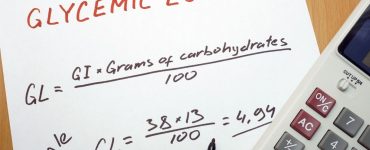 GLYCEMIC LO
GL = GI × Grams of carbohydrates
100
GL = 38 × 13 = 4,94
100
ON/C
AC
7